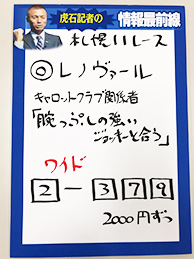 虎石記者の
情報最前線
札幌11レース
◎レノヴァール
キャロットクラブ関係者
「腕っぷしの強い
ジョッキーと合う」
ワイド
2-379
2000円ずつ